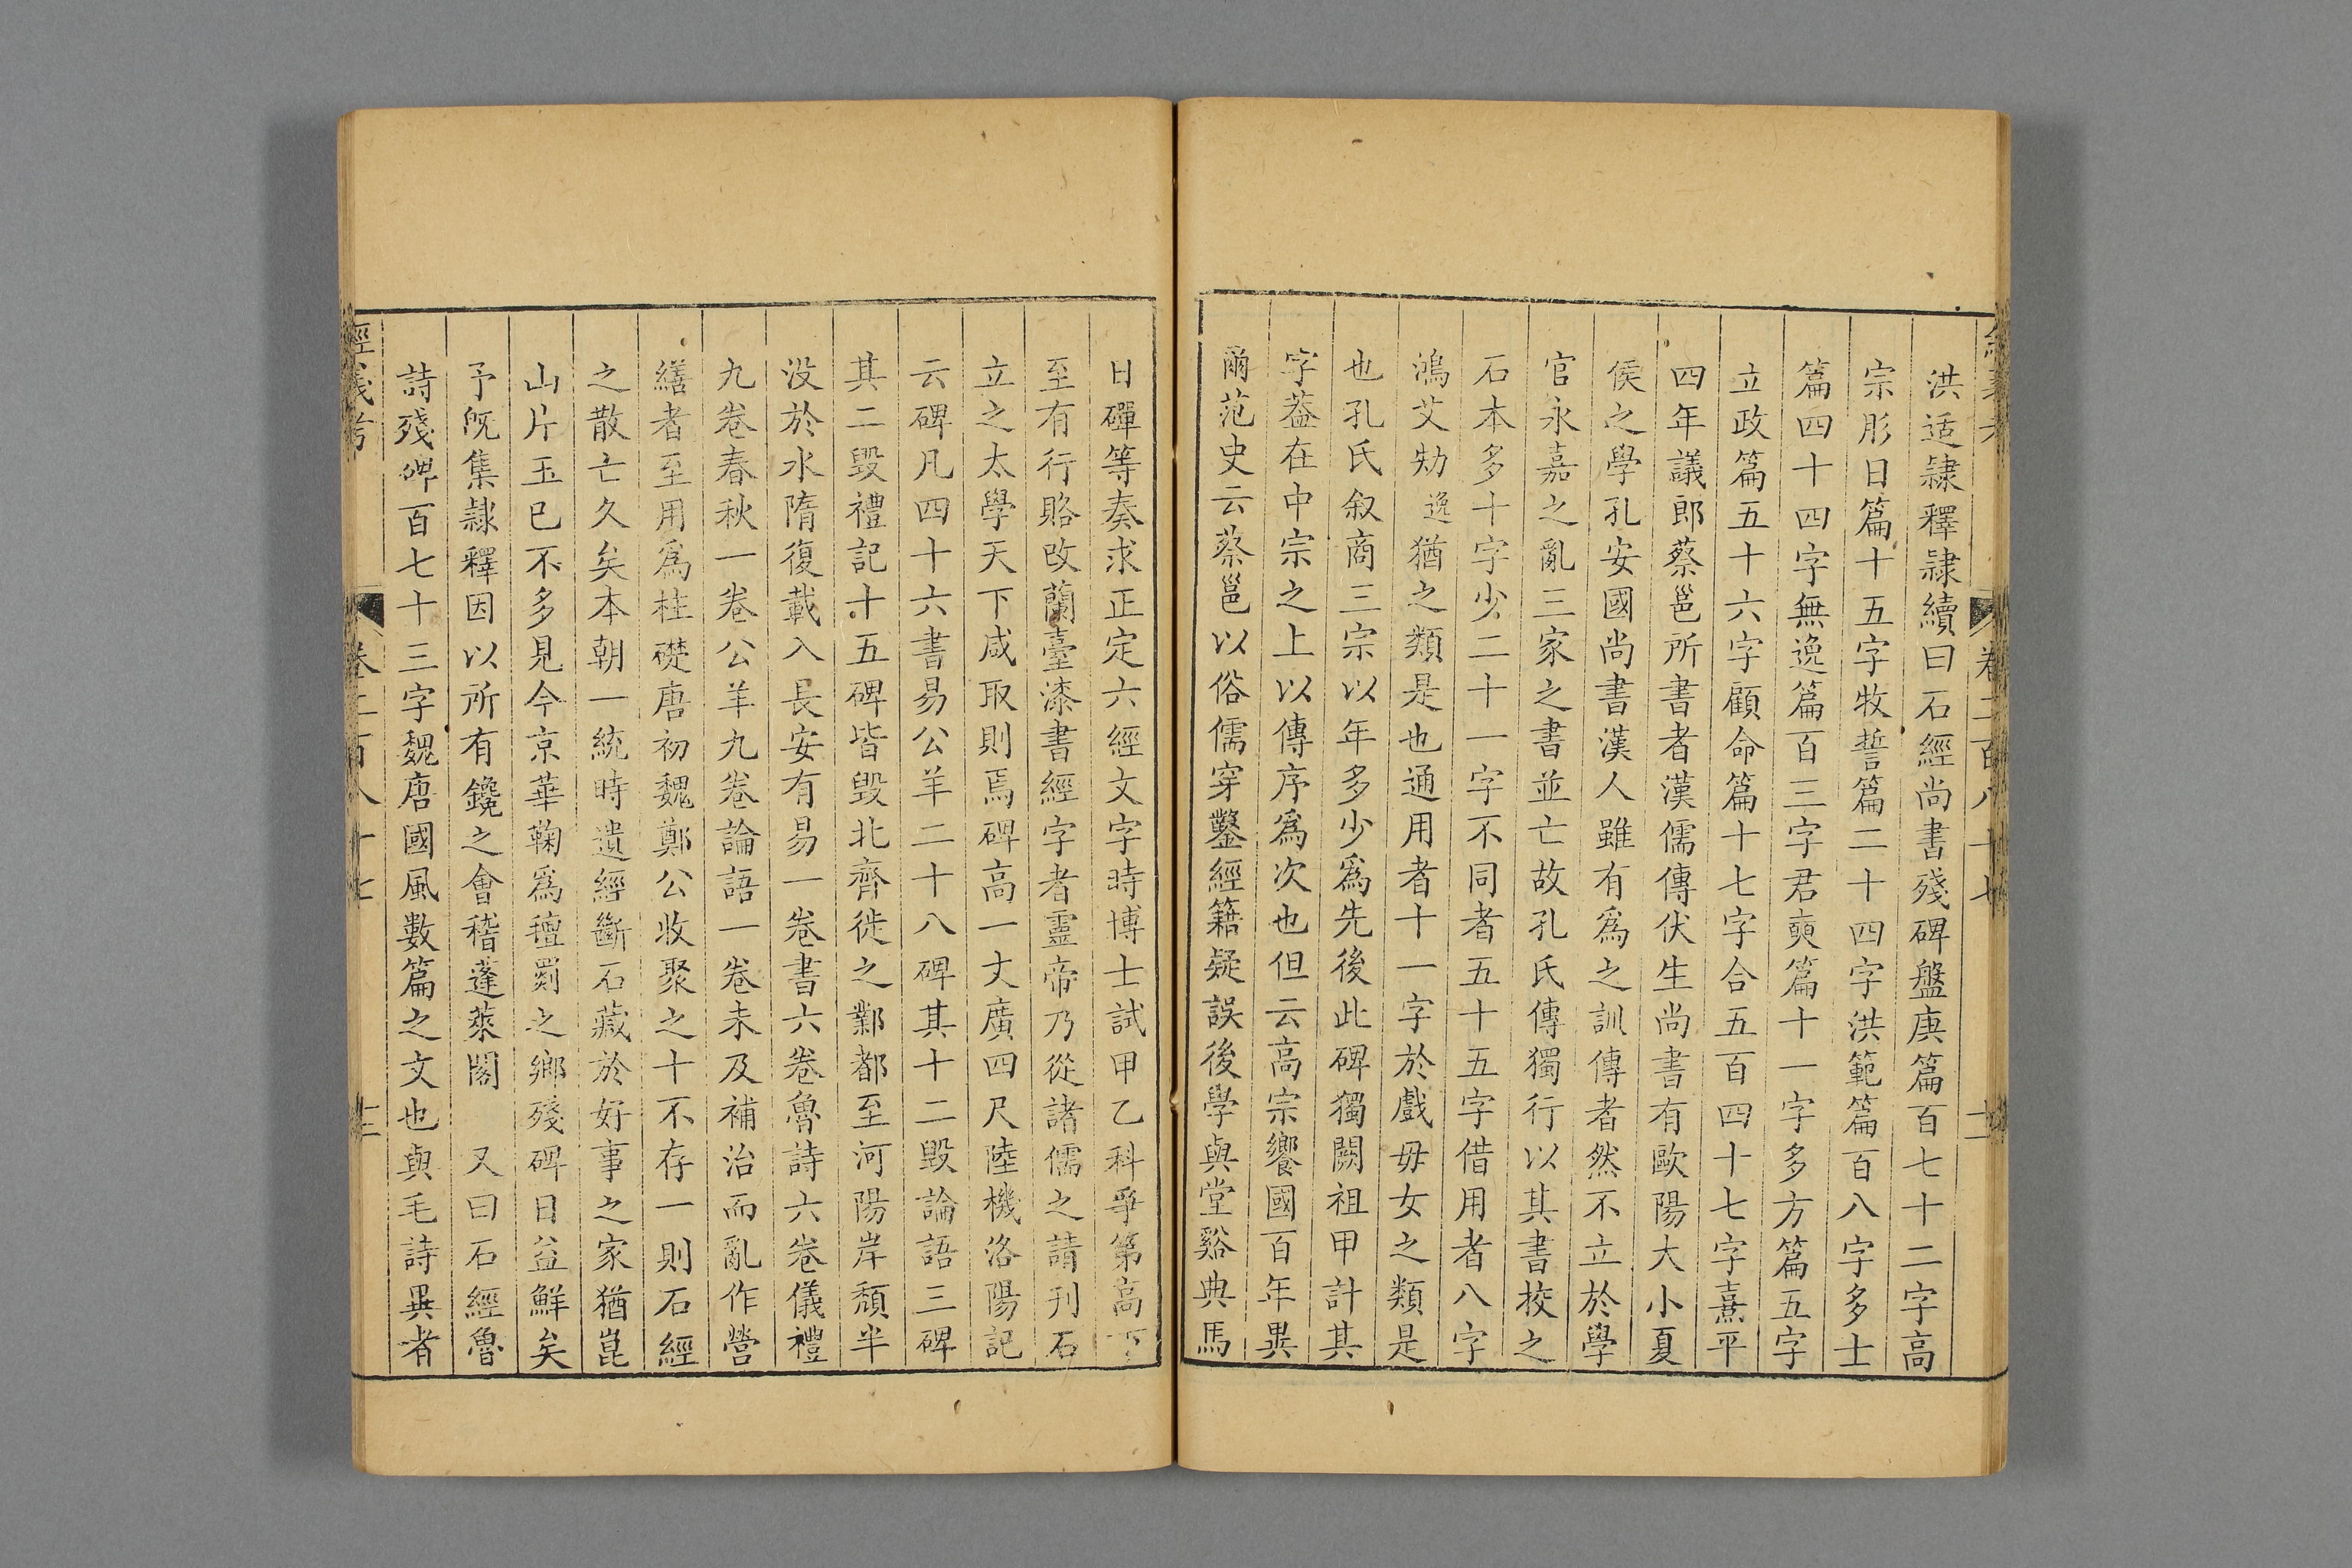 洪适隸釋隸續曰石經尚書殘碑盤庚篇百七十二字高
宗肜日篇十五字牧誓篇二十四字洪範篇百八字多士
篇四十四字無逸篇百三字君奭篇十一字多方篇五字
立政篇五十六字顧命篇十七字合五百四十七字熹平
四年議郎蔡邕所書者漢儒傳伏生尚書有歐陽大小夏
侯之學孔安國尚書漢人雖有為之訓傳者然不立於學
官永嘉之亂三家之書並亡故孔氏傳獨行以其書挍之
石本多十字少二十一字不同者五十五字借用者八字
鴻艾劮逸猶之類是也通用者十一字於戲毋女之類是
也孔氏叙商三宗以年多少爲先後此碑獨闕祖甲計其
字葢在中宗之上以傳序爲次也但云高宗饗國百年異
爾范史云蔡邕以俗儒穿鑿經籍疑誤後學與堂谿典馬
日磾等奏求正定六經文字時博士試甲乙科爭第高下
至有行賂改蘭臺漆書經字者靈帝乃從諸儒之請刊石
立之太學天下咸取則焉碑高一丈廣四尺陸機洛陽記
云碑凡四十六書易公羊二十八碑其十二毀論語三碑
其二毀禮記十五碑皆毀北齊徙之鄴都至河陽岸頹半
没於水隋復載入長安有易一卷書六卷魯詩六卷儀禮
九卷春秋一卷公羊九卷論語一卷未及補治而亂作營
繕者至用爲柱礎唐初魏鄭公收聚之十不存一則石經
之散亡久矣本朝一統時遺經斷石藏於好事之家猶崑
山片玉已不多見今京華鞠爲氊罽之鄉殘碑日益鮮矣
予旣集隸釋因以所有鑱之會稽蓬萊閣　又曰石經魯
詩殘碑百七十三字魏唐國風數篇之文也與毛詩異者
經義考 卷二百八十七